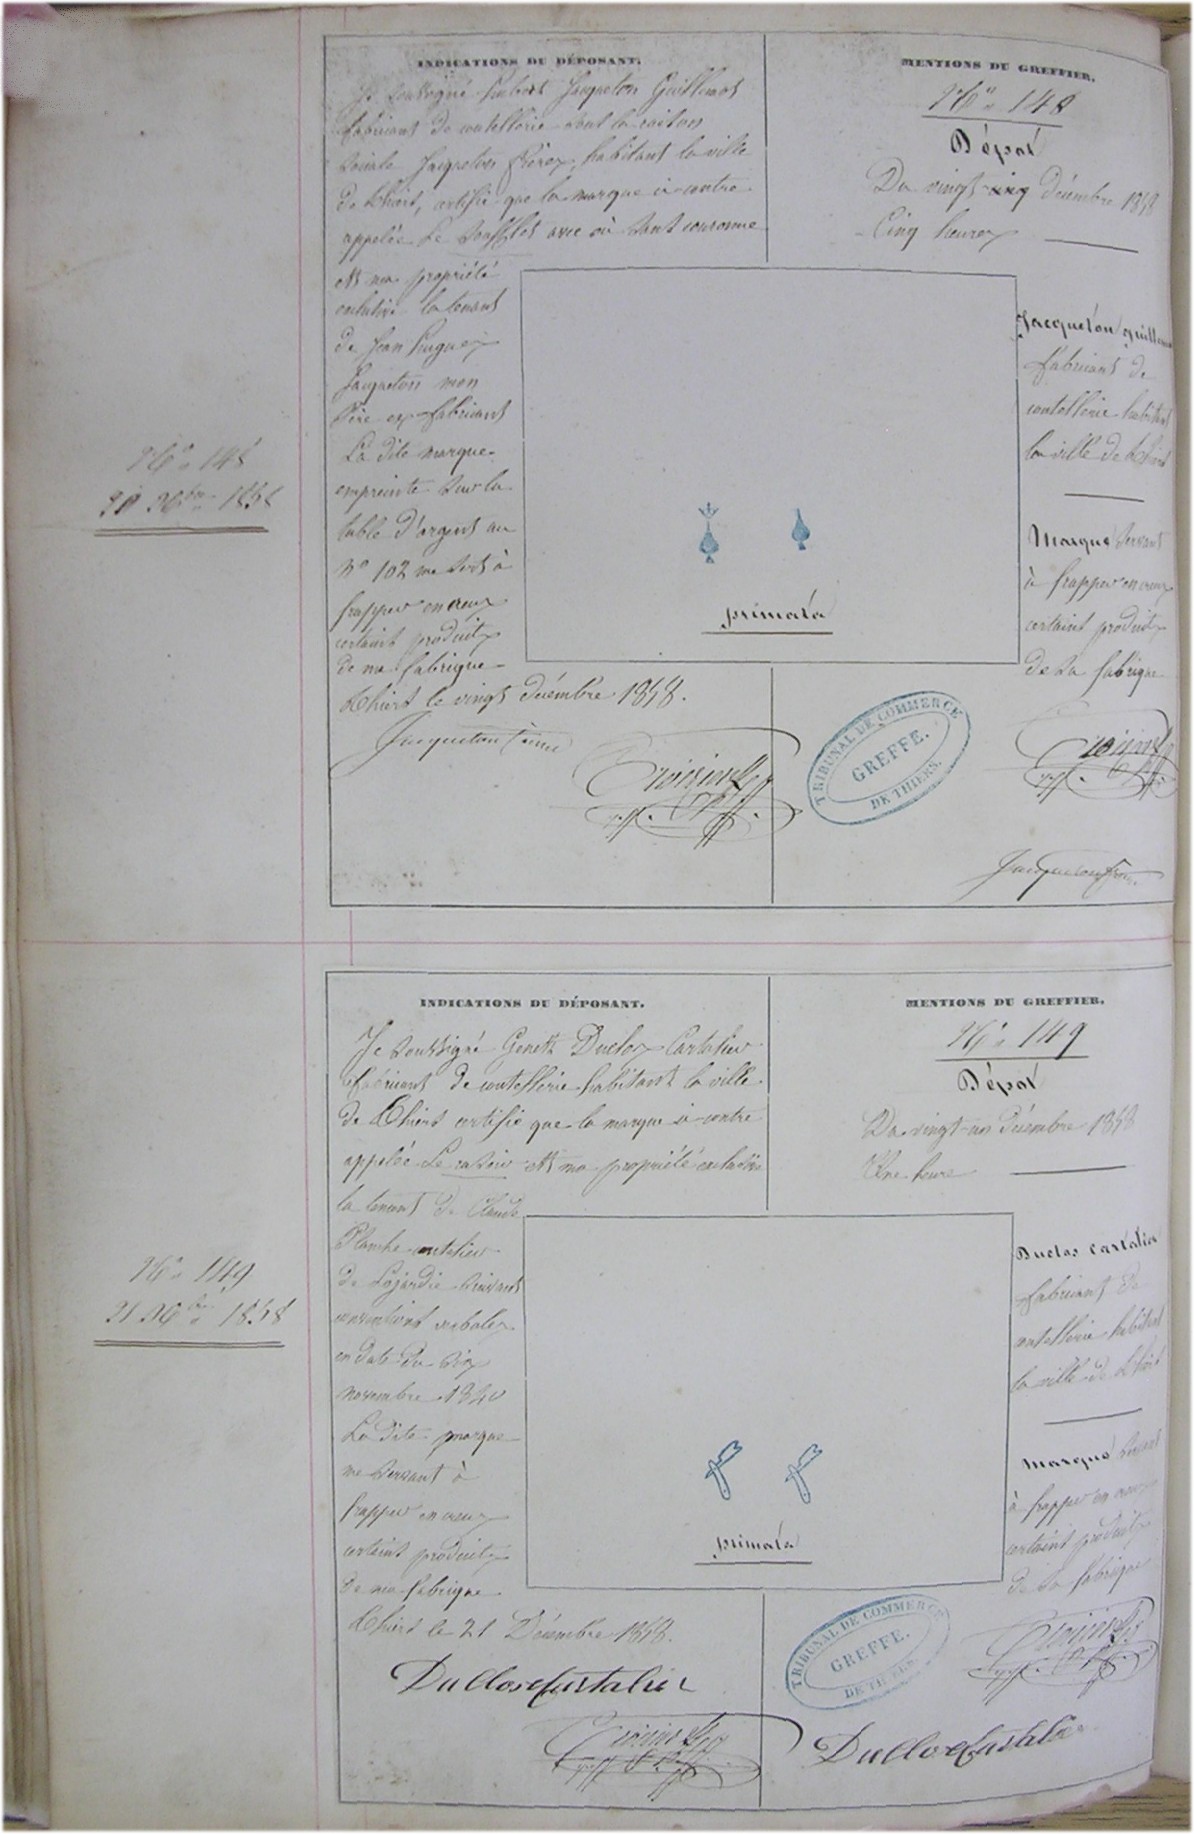 INDICATIONS DU DÉPOSANT.
Je soussigné Jacqueton Guillemot
fabricant de coutellerie dont la raison
sociale Jacqueton frères, habitant la ville
de Thiers, certifie que la marque ci-contre
appelée Le Soufflet avec ou sant couronne
est ma propriété
exclusive la tenant
de Jean
Jacqueton mon
Père ex-fabricant
La dite marque
empreinte sur la
table d'argent au
N° 102 me sert à
frapper en creux
certaint produits
de ma fabrique
Thiers le vingt décembre 1858.
Jacqueton
MENTIONS DU GREFFIER.
N° 148
Dépôt
Du vingt décembre 1858
Cinq heures
Jacqueton
fabricant de
coutellerie habitant
la ville de Thiers
Marque servant
à frapper en creux
certaint produits
de sa fabrique
primata
TRIBUNAL DE COMMERCE
GREFFE.
DE THIERS.
N° 148
20 Xbre 1858
INDICATIONS DU DÉPOSANT.
Je soussigné Duclos Cartalier
fabricant de coutellerie habitant la ville
de Thiers certifie que la marque ci-contre
appelée Le rasoir est ma propriété exclusive
la tenant de Claude
Planche coutelier
de suivant
conventions verbales
en date du dix
novembre 1840
La dite marque
me servant à
frapper en creux
certaint produits
de ma fabrique
Thiers le 21 Décembre 1858.
Duclos Cartalier
MENTIONS DU GREFFIER.
N° 149
Dépôt
Du vingt-un décembre 1858
Une heure
Duclos Cartalier
fabricant de
coutellerie habitant
la ville de Thiers
Marque servant
à frapper en creux
certaint produits
de sa fabrique
primata
TRIBUNAL DE COMMERCE
GREFFE.
DE THIERS.
Duclos Cartalier
N° 149
21 Xbre 1858